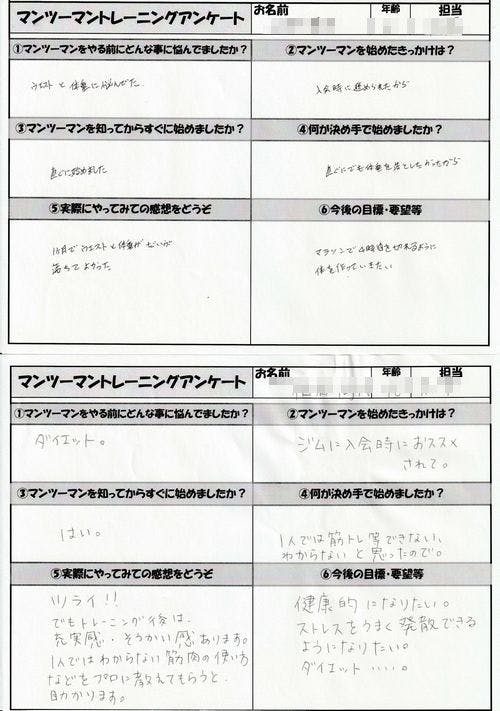 マンツーマントレーニングアンケート
お名前
年齢
担当
①マンツーマンをやる前にどんな事に悩んでましたか？
②マンツーマンを始めたきっかけは？
ウエストと体重に悩んだ
入会時に進められたから
③マンツーマンを知ってからすぐに始めましたか？
④何が決め手で始めましたか？
直ぐに始めました
直ぐにでも体重を落としたかったから
⑤実際にやってみての感想をどうぞ
⑥今後の目標・要望等
1ヶ月でウエストと体重がだいぶ
落ちてよかった
マラソンで4時間を切れるように
体を作っていきたい
マンツーマントレーニングアンケート
お名前
年齢
担当
①マンツーマンをやる前にどんな事に悩んでましたか？
②マンツーマンを始めたきっかけは？
ダイエット。
ジムに入会時におススメ
されて。
③マンツーマンを知ってからすぐに始めましたか？
④何が決め手で始めましたか？
はい。
1人では筋トレ等できない、
わからないと思ったので。
⑤実際にやってみての感想をどうぞ
⑥今後の目標・要望等
ツライ!!
でもトレーニング後は、
充実感・そうかい感あります。
1人ではわからない筋肉の使い方
などをプロに教えてもらうと、
助かります。
健康的になりたい。
ストレスをうまく発散できる
ようになりたい。
ダイエット・・・・。